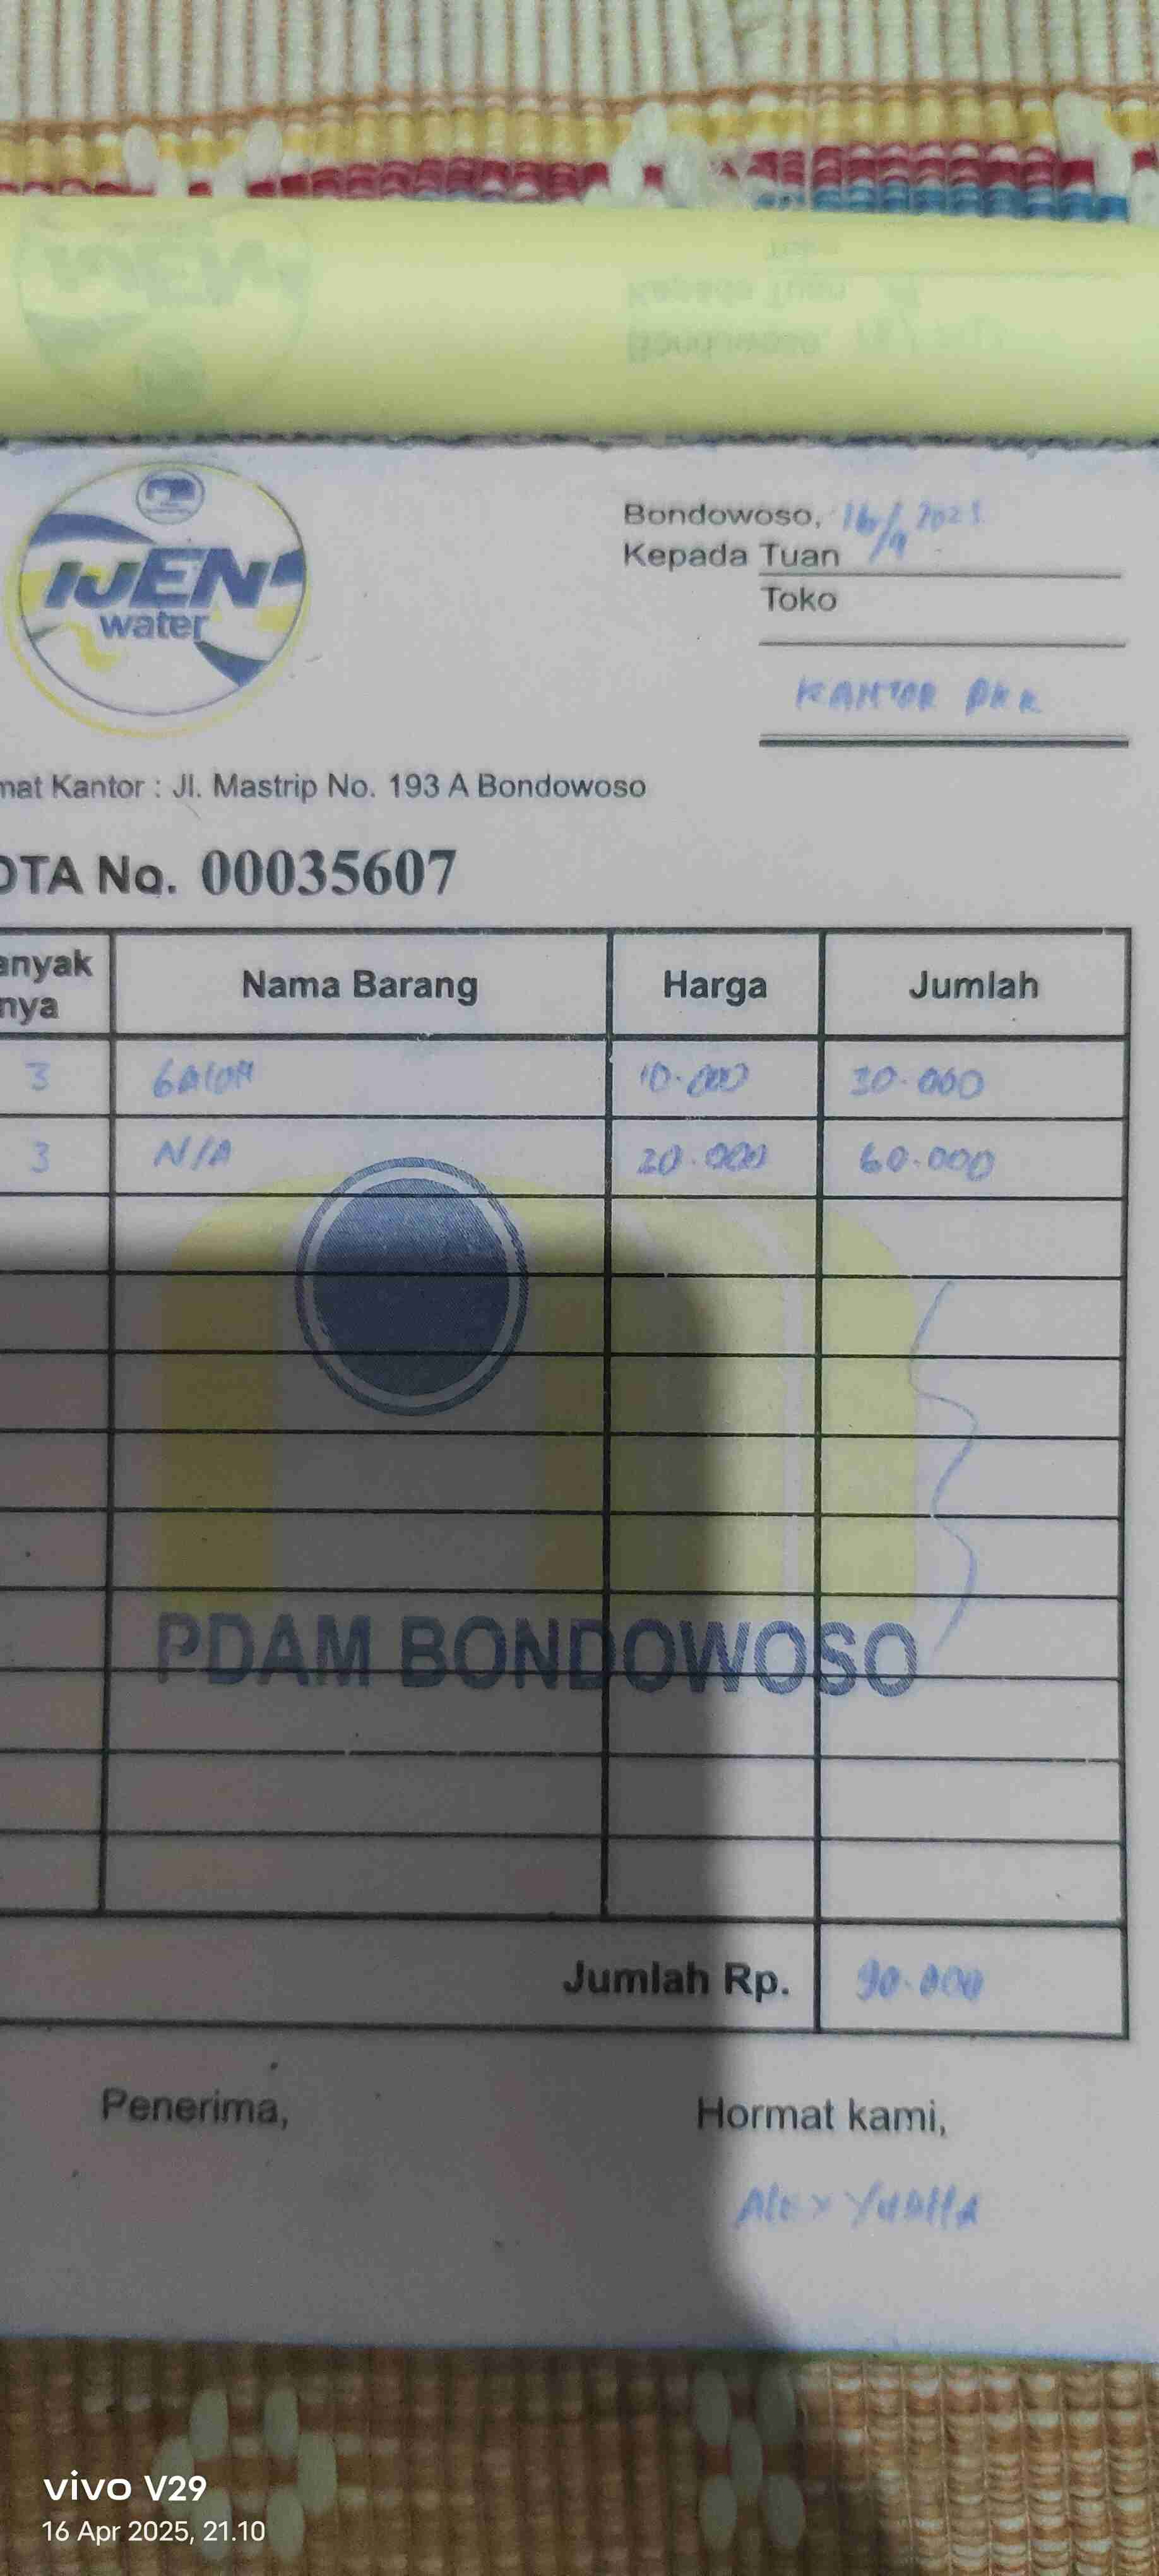 IJEN
water
Bondowoso, 16/4 2025
Kepada Tuan
Toko
KANTOR PKK
mat Kantor : Jl. Mastrip No. 193 A Bondowoso
OTA No. 00035607
anyak
nya
Nama Barang
Harga
Jumlah
3 GALON 10.000 30.000
3 N/A 20.000 60.000
PDAM BONDOWOSO
Jumlah Rp. 90.000
Penerima,
Hormat kami,
vivo V29
16 Apr 2025, 21.10